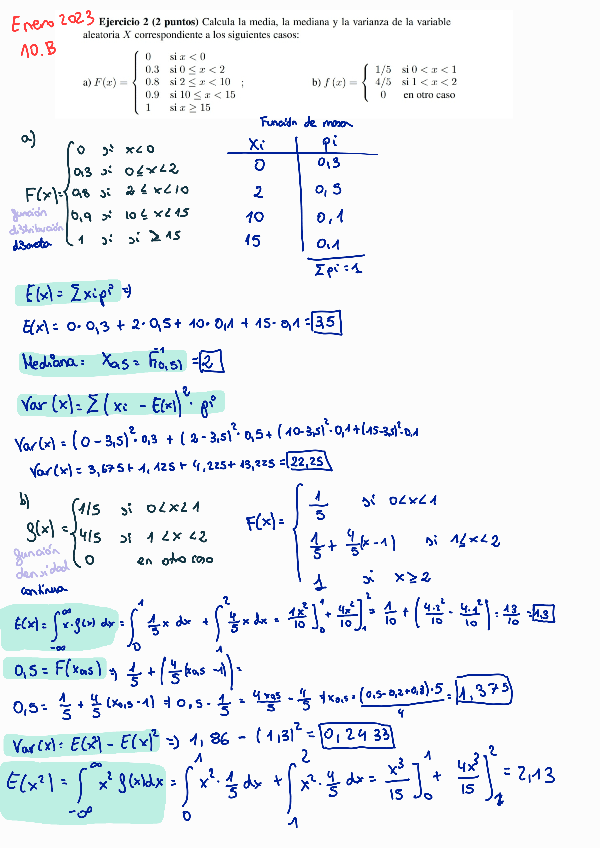 Enero 2023
10.B
Ejercicio 2 (2 puntos) Calcula la media, la mediana y la varianza de la variable
aleatoria X correspondiente a los siguientes casos:
a) F(x) = { 0 si x < 0
0.3 si 0 ≤ x < 2
0.8 si 2 ≤ x < 10
0.9 si 10 ≤ x < 15
1 si x ≥ 15 ;
b) f(x) = { 1/5 si 0 < x < 1
4/5 si 1 < x < 2
0 en otro caso
a)
F(x) = { 0 si x<0
0,3 si 0≤x<2
0,8 si 2≤x<10
0,9 si 10≤x<15
1 si si ≥15
función
distribución
discreta
Función de masa
Xi pi
0 0,3
2 0,5
10 0,1
15 0,1
Σpi = 1
E(x) = Σxipi ⇒
E(x) = 0·0,3 + 2·0,5 + 10·0,1 + 15·0,1 = 3,5
Mediana: X0,5 = F⁻¹(0,5) = 2
Var(x) = Σ(xi − E(x))²·pi
Var(x) = (0−3,5)²·0,3 + (2−3,5)²·0,5 + (10−3,5)²·0,1 + (15−3,5)²·0,1
Var(x) = 3,675 + 1,125 + 4,225 + 13,225 = 22,25
b)
f(x) = { 1/5 si 0<x<1
4/5 si 1<x<2
0 en otro caso
función
densidad
continua
F(x) = { 1/5 si 0<x<1
1/5 + 4/5(x−1) si 1≤x<2
1 si x≥2
E(x) = ∫_{-∞}^{∞} x·f(x) dx = ∫_0^1 1/5 x dx + ∫_1^2 4/5 x dx = 1x²/10]_0^1 + 4x²/10]_1^2 = 1/10 + (4·2²/10 − 4·1²/10) = 13/10 = 1,3
0,5 = F(x0,5) ⇒ 1/5 + (4/5(x0,5 − 1)) =
0,5 = 1/5 + 4/5(x0,5 − 1) ⇒ 0,5 − 1/5 = 4x0,5/5 − 4/5 ⇒ x0,5 = (0,5−0,2+0,8)·5/4 = 1,375
Var(x) = E(x²) − E(x)² ⇒ 1,86 − (1,3)² = 0,2433
E(x²) = ∫_{-∞}^{∞} x² f(x) dx = ∫_0^1 x²·1/5 dx + ∫_1^2 x²·4/5 dx = x³/15]_0^1 + 4x³/15]_1^2 = 2,13